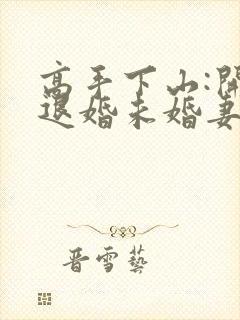 高手下山:開
退婚未婚妻
晋雪藝